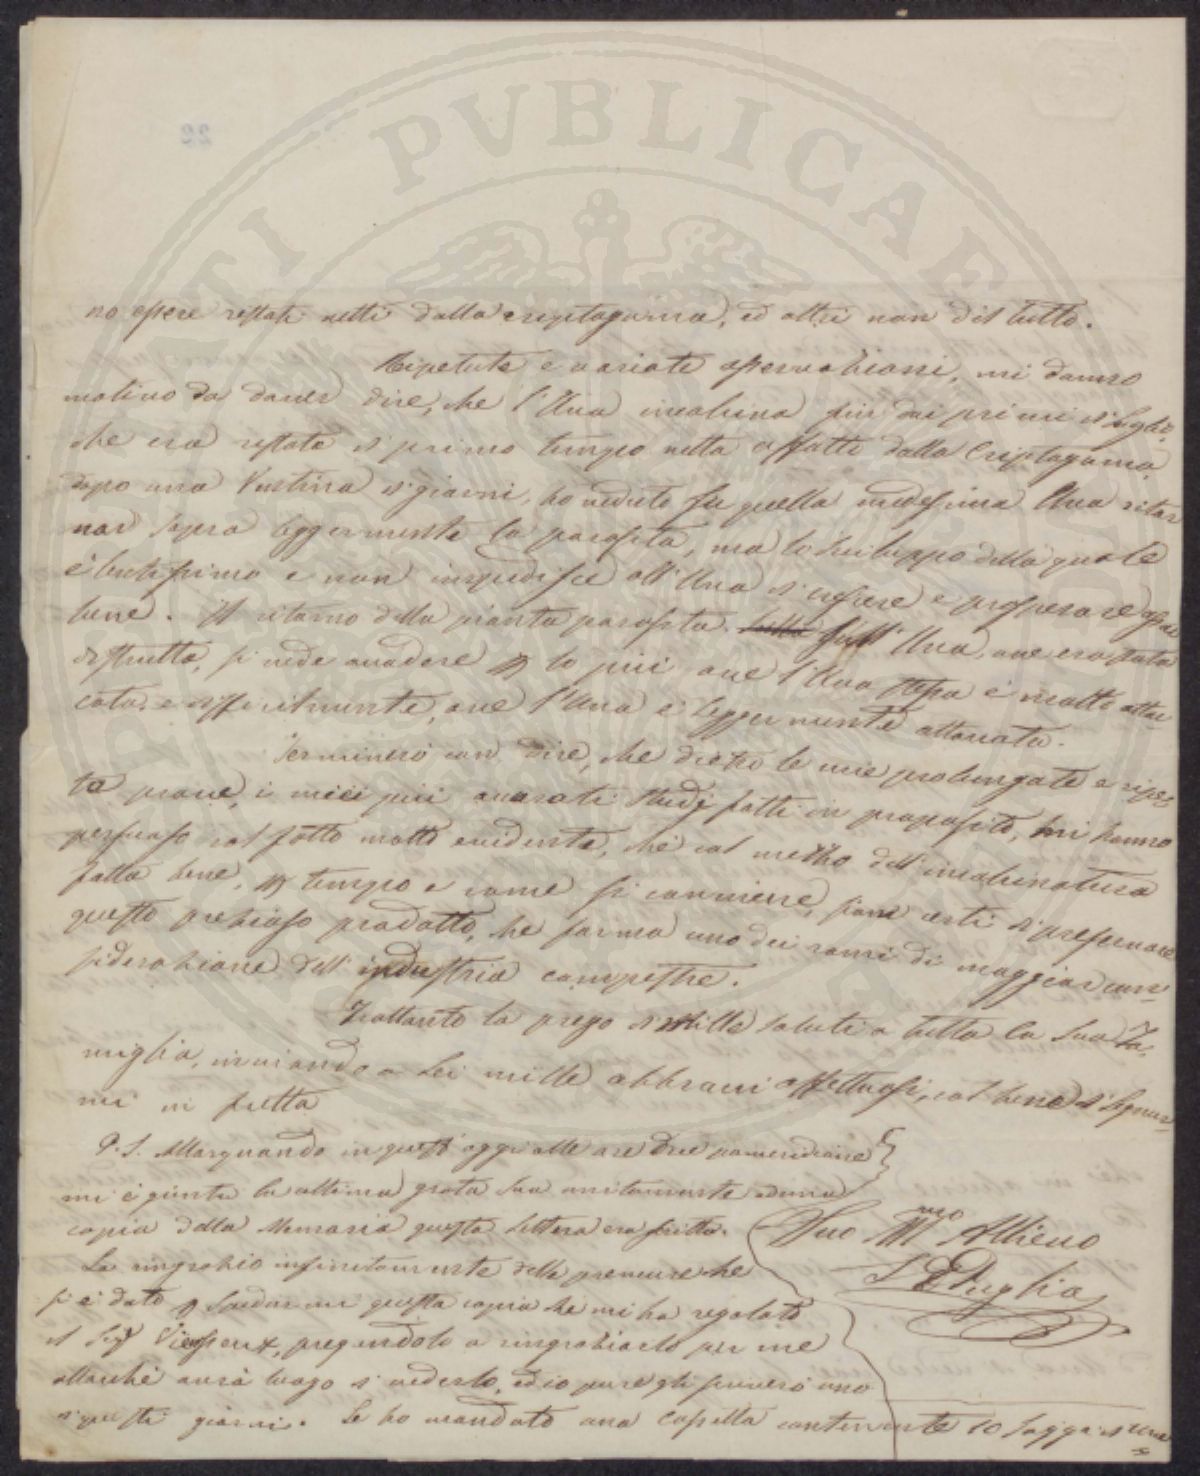 22
no essere restati netti dalla criptogama, ed altri non del tutto.
Ripetute e variate osservazioni, mi danno
motivo da dover dire, che l'Uva incalcina fin dai primi di Luglio
che era restata di primo tempo netta affatto dalla Criptogama
dopo una ventina di giorni, ho veduto su quella medesima Uva ritor
nar sopra leggermente la parasita, ma lo sviluppo della quale
è lentissimo e non impedisce all'Uva di crescere e prosperare assai
bene. Il ritorno della pianta parasita sull'Uva, ove era stata
distrutta, si vede accadere p lo più ove l'Uva stessa è molto attac
cata, e difficilmente, ove l'Uva è leggermente attaccata.
Terminerò con dire, che dietro le mie prolungate e ripetu
te prove, i miei più accurati studj fatti in proposito, mi hanno
persuaso col fatto molto evidente, che col mezzo dell'incalcinatura
fatta bene, p tempo e come si conviene, siam certi di preservare
questo prezioso prodotto, che forma uno dei rami di maggior con-
siderazione dell'industria campestre.
Frattanto la prego di mille saluti a tutta la Sua Fa-
miglia, inviando a Lei mille abbracci affettuosi, col bene di segnar-
mi in fretta
P.S. Allorquando in quest'oggi alle ore due pomeridiane
mi è giunta la ultima grata Sua unitamente ad una
copia della Memoria questa lettera era scritta.
La ringrazio infinitamente delle premure che
si è dato p mandarmi questa copia che mi ha regalato
il Sigr Vieusseux, pregandola a ringraziarlo per me
allorchè avrà luogo di vederlo, ed io pure gli scriverò uno
di questi giorni. Le ho mandato una Cassetta contenente 10 saggi di uva
Suo Affmo Allievo
L. Puglia